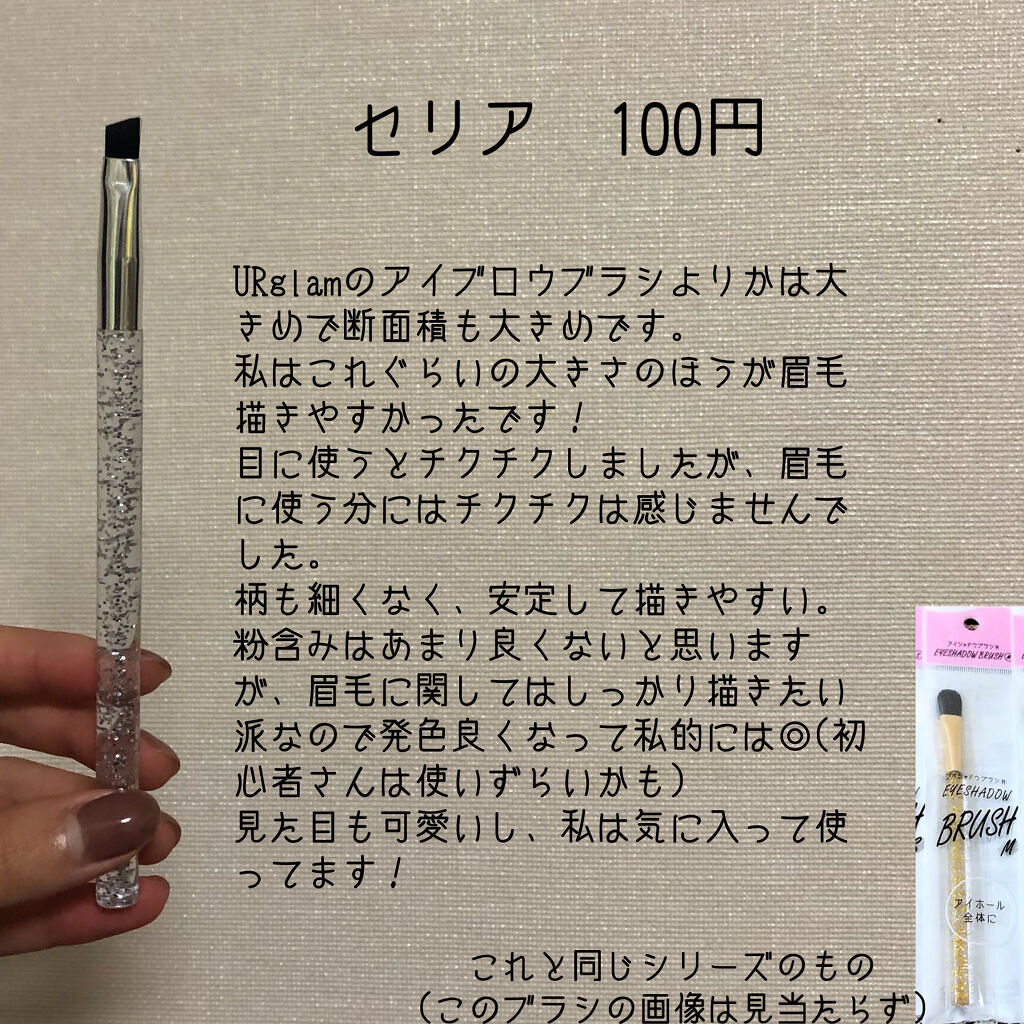 セリア　100円
URglamのアイブロウブラシよりかは大
きめで断面積も大きめです。
私はこれぐらいの大きさのほうが眉毛
描きやすかったです！
目に使うとチクチクしましたが、眉毛
に使う分にはチクチクは感じませんで
した。
柄も細くなく、安定して描きやすい。
粉含みはあまり良くないと思います
が、眉毛に関してはしっかり描きたい
派なので発色良くなって私的には◎(初
心者さんは使いずらいかも)
見た目も可愛いし、私は気に入って使
ってます！
アイシャドウブラシM
EYESHADOW BRUSH
アイシャドウブラシM
EYESHADOW
BRUSH
M
アイホール
全体に
これと同じシリーズのもの
(このブラシの画像は見当たらず)